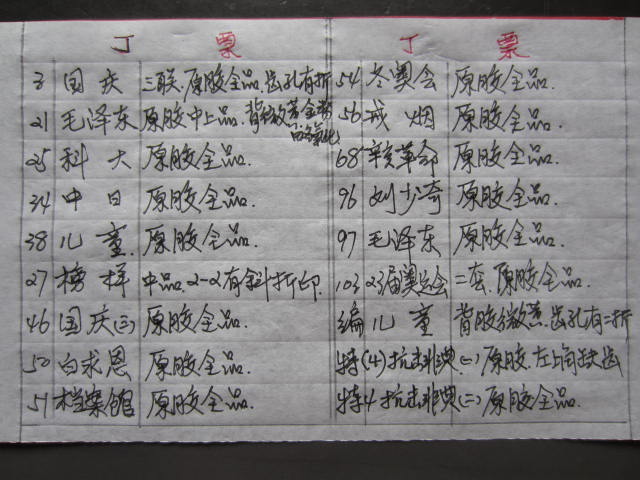 丁票
3 国庆 三联.原胶全品.齿孔有折
21 毛泽东 原胶中上品.背微黄金粉
25 科大 原胶全品.
34 中日 原胶全品.
38 儿童. 原胶全品.
27 榜样 中品.2-2有斜折印.
46 国庆(三) 原胶全品.
50 白求恩 原胶全品.
51 档案馆 原胶全品.
丁票
54 冬奥会 原胶全品.
56 戒烟 原胶全品.
68 辛亥革命 原胶全品.
96 刘少奇 原胶全品.
97 毛泽东 原胶全品.
103 23届奥运会 二套.原胶全品.
编 儿童 背胶微黄.齿孔有二折
特(4)抗击非典(一)原胶.左上角缺齿
特4抗击非典(二)原胶全品.